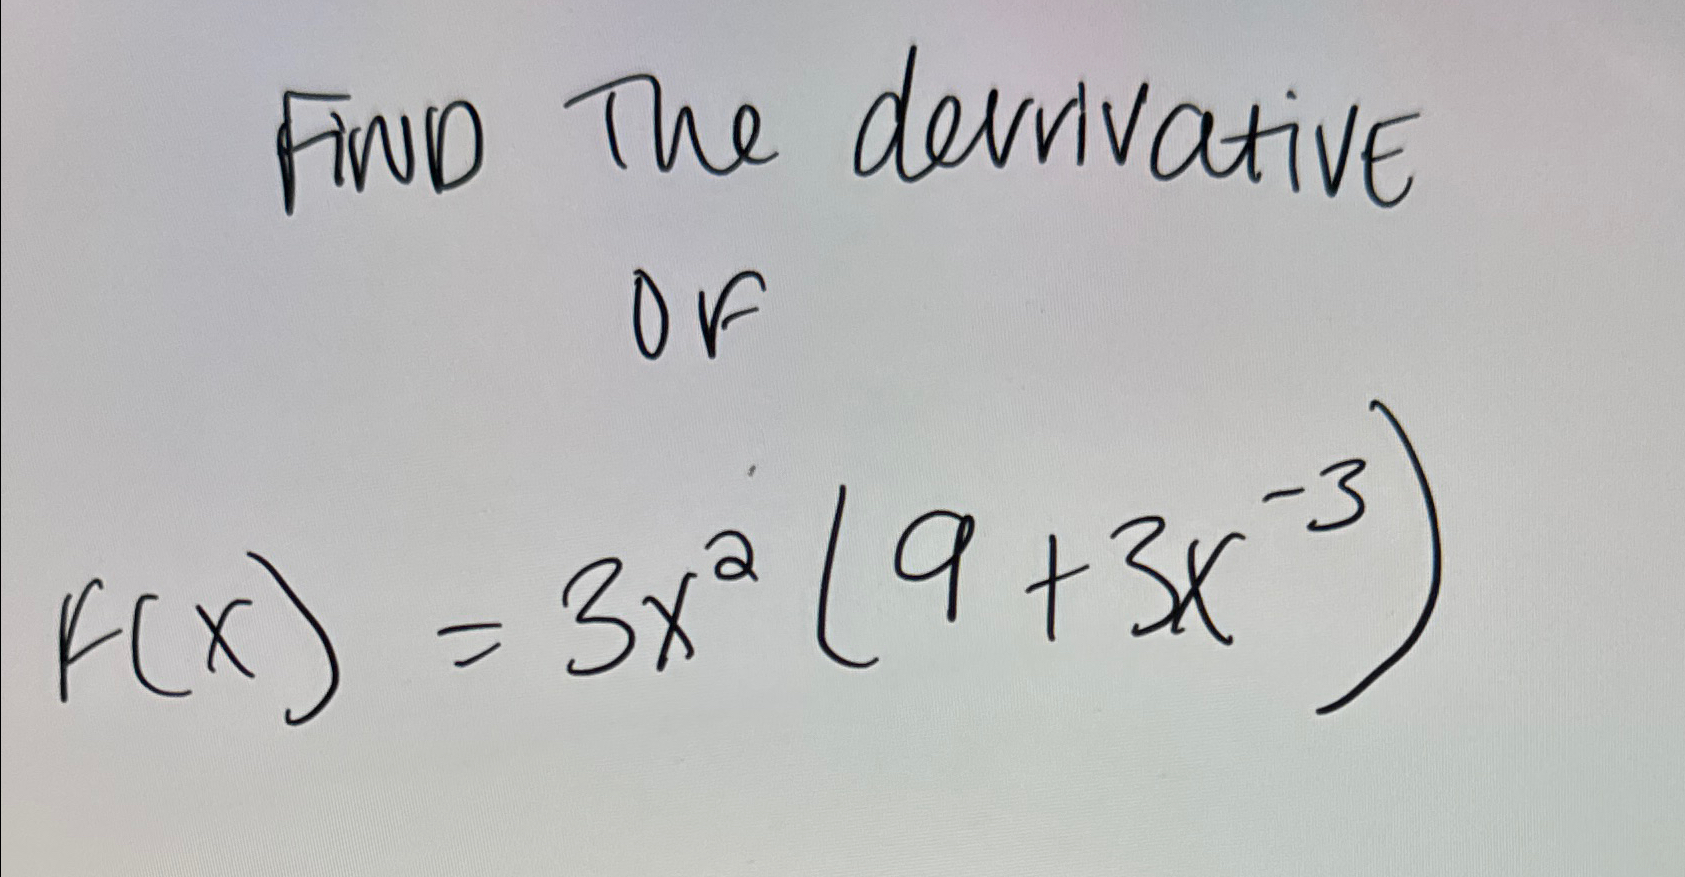 FIND The derrivative
OF
F(x) = 3x² (9 + 3x⁻³)